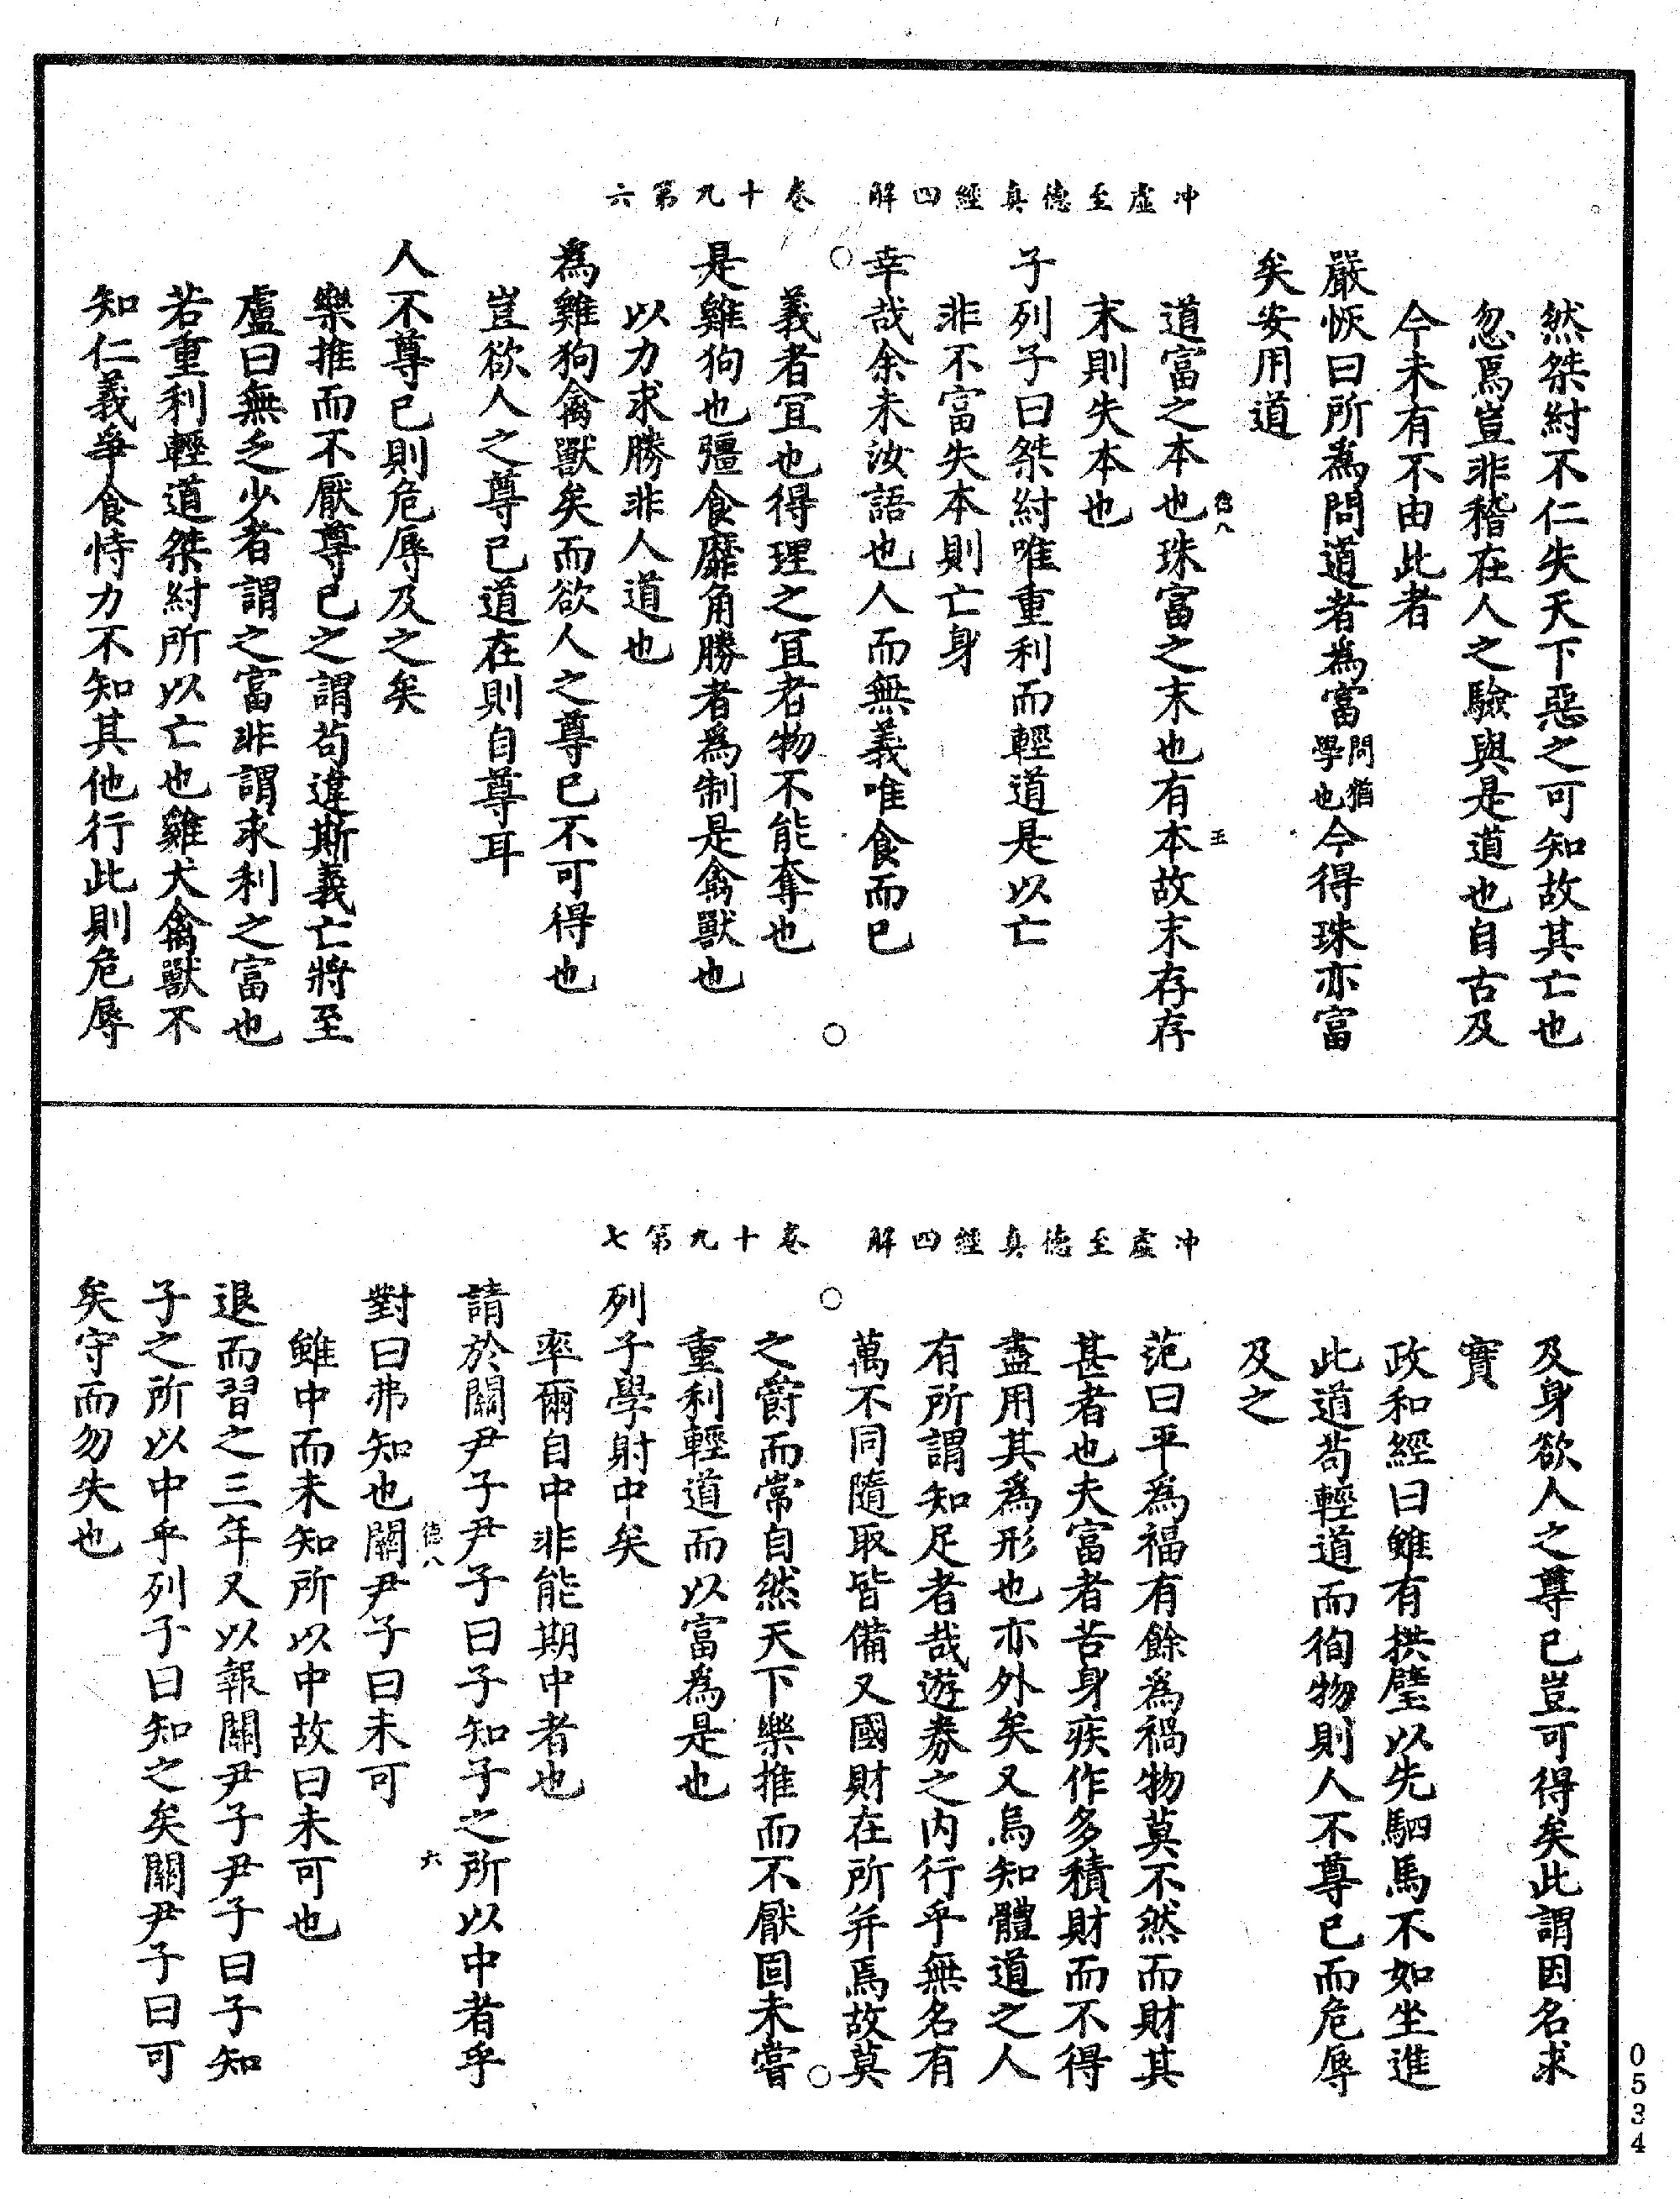 然桀紂不仁失天下惡之可知故其亡也
忽焉豈非稽在人之驗與是道也自古及
今未有不由此者
嚴恢曰所為問道者為富問猶學也今得珠亦富
矣安用道
道富之本也珠富之末也有本故末存存
末則失本也
德八
五
子列子曰桀紂唯重利而輕道是以亡
非不富失本則亡身
幸哉余未汝語也人而無義唯食而已
冲虛至德真經四解 卷十九第六
義者宜也得理之宜者物不能奪也
是雞狗也彊食靡角勝者為制是禽獸也
以力求勝非人道也
為雞狗禽獸矣而欲人之尊已不可得也
豈欲人之尊已道在則自尊耳
人不尊已則危辱及之矣
樂推而不厭尊已之謂苟違斯義亡將至
盧曰無乏少者謂之富非謂求利之富也
若重利輕道桀紂所以亡也雞犬禽獸不
知仁義爭食恃力不知其他行此則危辱
及身欲人之尊已豈可得矣此謂因名求
實
政和經曰雖有拱璧以先駟馬不如坐進
此道苟輕道而徇物則人不尊已而危辱
及之
范曰平為福有餘為禍物莫不然而財其
甚者也夫富者苦身疾作多積財而不得
盡用其為形也亦外矣又烏知體道之人
有所謂知足者哉遊券之內行乎無名有
萬不同隨取皆備又國財在所并焉故莫
冲虛至德真經四解 卷十九第七
之爵而常自然天下樂推而不厭固未嘗
重利輕道而以富為是也
列子學射中矣
率爾自中非能期中者也
請於關尹子尹子曰子知子之所以中者乎
對曰弗知也關尹子曰未可
德八
六
雖中而未知所以中故曰未可也
退而習之三年又以報關尹子尹子曰子知
子之所以中乎列子曰知之矣關尹子曰可
矣守而勿失也
0534